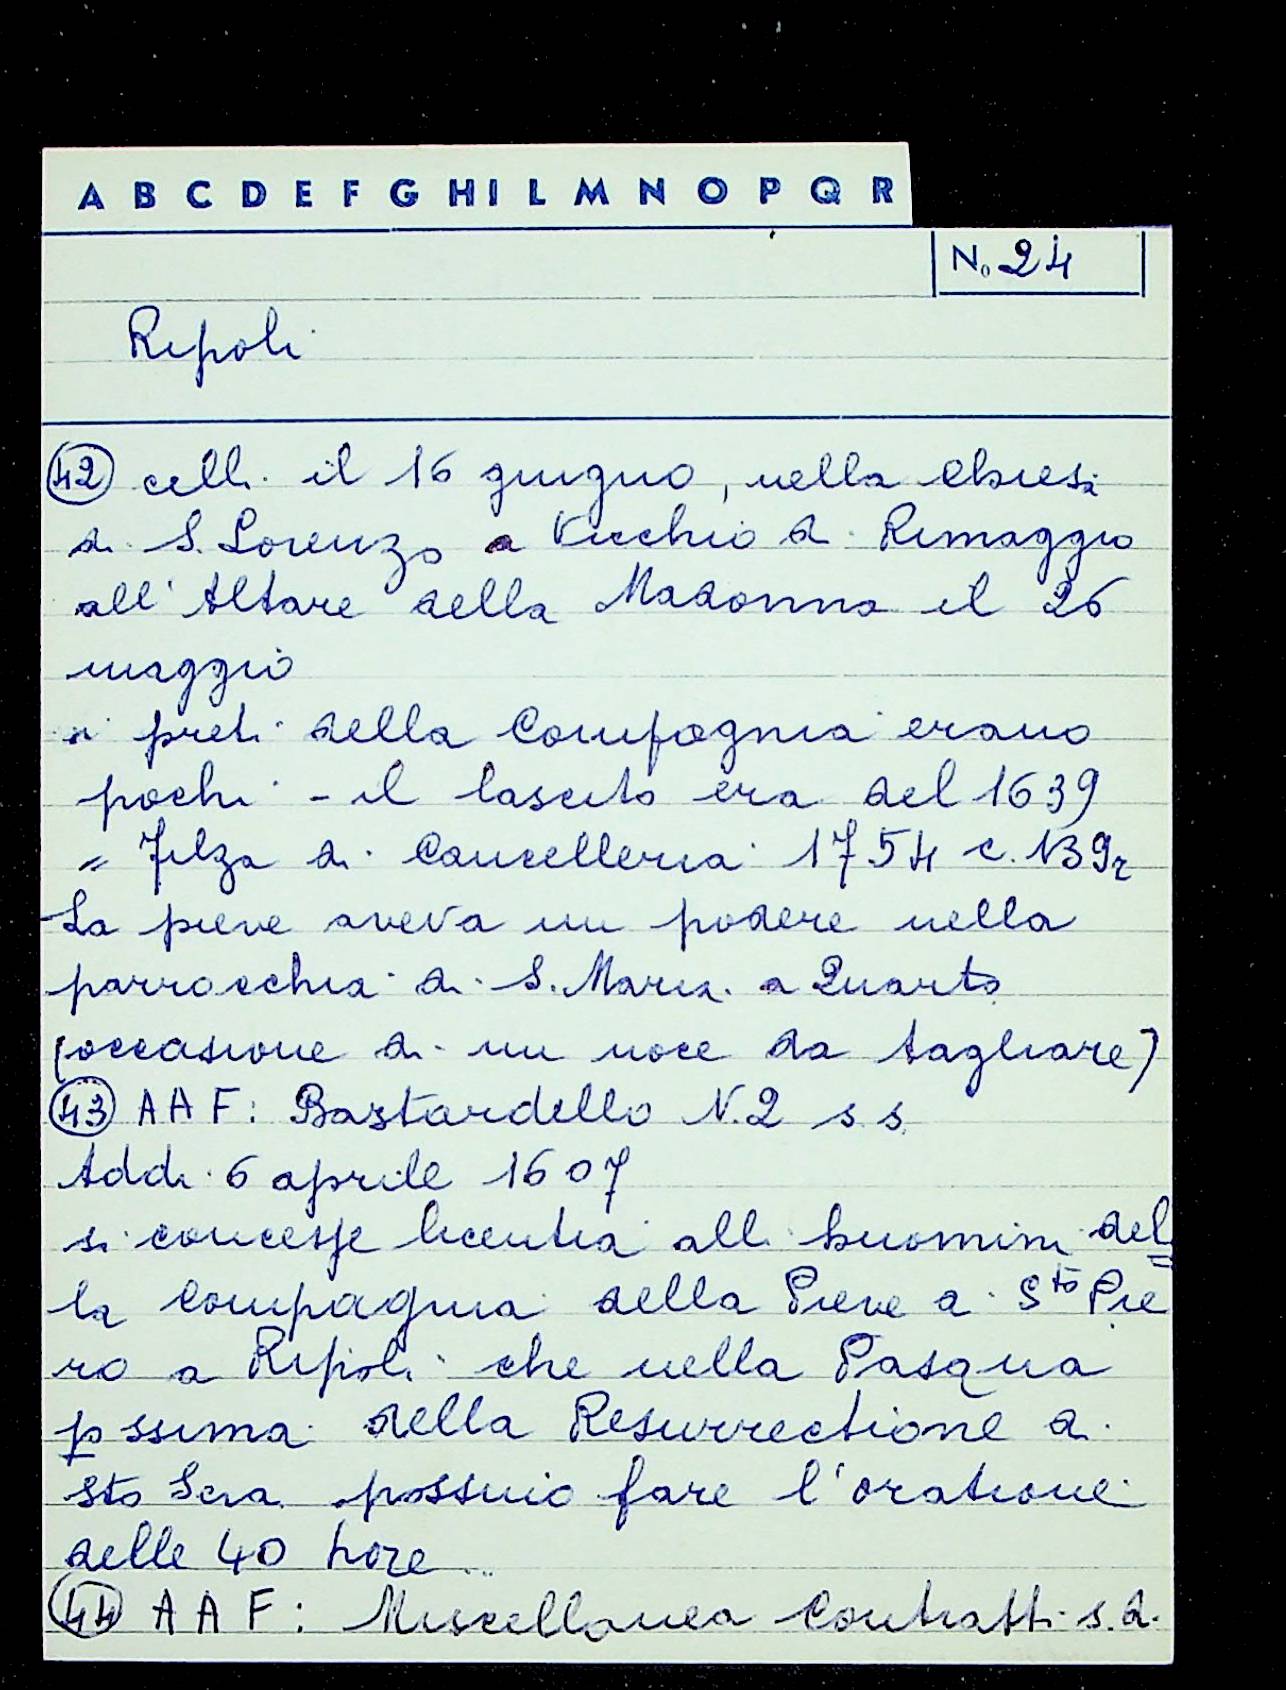 A B C D E F G H I L M N O P Q R
No. 24
Ripoli
42 celli. il 16 giugno, nella chiesa
di S. Lorenzo a Vicchio di Rimaggio
all'Altare della Madonna il 26
maggio
i preti della Compagnia erano
pochi - il lascito era del 1639
" Filza di Cancelleria 1754 c. 139r
La pieve aveva un podere nella
parrocchia di S. Maria a Quarto
(occasione di un noce da tagliare)
43 AAF: Bastardello N.2 s.s.
Addi 6 aprile 1607
si concesse licentia alli huomini del
la Compagnia della Pieve a Sto Pie
ro a Ripoli che nella Pasqua
pssima della Resurrectione di
Sto possino fare l'oratione
delle 40 hore...
44 AAF: Miscellanea Contratti s.d.